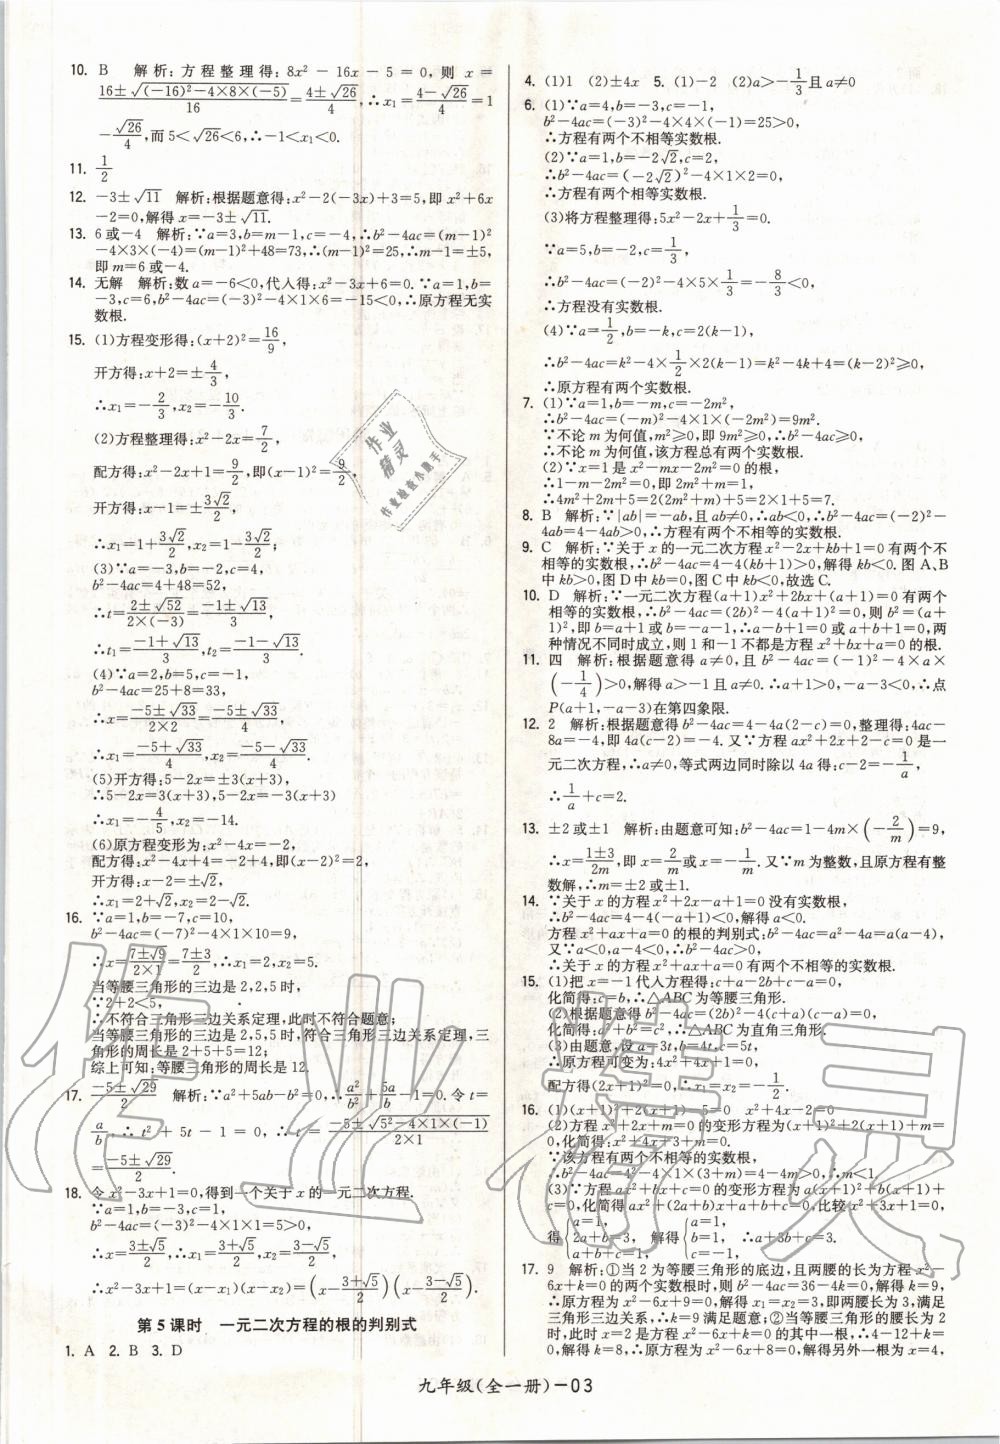 10. B 解析:方程整理得:8x²-16x-5=0,则 x=
(16±√((-16)²-4×8×(-5)))/16=(4±√26)/4,∴x₁=(4-√26)/4=1
-√26/4,而5<√26<6,∴-1<x₁<0.
11. 1/2
12. -3±√11 解析:根据题意得:x²-2(-3x)+3=5,即x²+6x
-2=0,解得x=-3±√11.
13. 6或-4 解析:∵a=3,b=m-1,c=-4,∴b²-4ac=(m-1)²
-4×3×(-4)=(m-1)²+48=73,∴(m-1)²=25,∴m-1=±5,
即m=6或-4.
14. 无解 解析:数a=-6<0,代入得:x²-3x+6=0.∵a=1,b=
-3,c=6,b²-4ac=(-3)²-4×1×6=-15<0,∴原方程无实
数根.
15. (1)方程变形得:(x+2)²=16/9,
开方得:x+2=±4/3,
∴x₁=-2/3,x₂=-10/3.
(2)方程整理得:x²-2x=7/2,
配方得:x²-2x+1=9/2,即(x-1)²=9/2,
开方得:x-1=±3√2/2,
∴x₁=1+3√2/2,x₂=1-3√2/2;
(3)∵a=-3,b=-2,c=4,
b²-4ac=4+48=52,
∴t=(2±√52)/(2×(-3))=(-1±√13)/3,
∴t₁=(-1+√13)/3,t₂=(-1-√13)/3.
(4)∵a=2,b=5,c=-1,
b²-4ac=25+8=33,
∴x=(-5±√33)/(2×2)=(-5±√33)/4,
∴x₁=(-5+√33)/4,x₂=(-5-√33)/4.
(5)开方得:5-2x=±3(x+3),
∴5-2x=3(x+3),5-2x=-3(x+3)
∴x₁=-4/5,x₂=-14.
(6)原方程变形为:x²-4x=-2,
配方得:x²-4x+4=-2+4,即(x-2)²=2,
开方得:x-2=±√2,
∴x₁=2+√2,x₂=2-√2.
16. ∵a=1,b=-7,c=10,
b²-4ac=(-7)²-4×1×10=9,
∴x=(7±√9)/(2×1)=(7±3)/2,∴x₁=2,x₂=5.
当等腰三角形的三边是2,2,5时,
∵2+2<5,
∴不符合三角形三边关系定理,此时不符合题意;
当等腰三角形的三边是2,5,5时,符合三角形三边关系定理,三
角形的周长是2+5+5=12;
综上可知:等腰三角形的周长是12.
17. (-5±√29)/2 解析:∵a²+5ab-b²=0,∴a²/b²+5a/b-1=0.令t=
a/b,∴t²+5t-1=0,∴t=(-5±√(5²-4×1×(-1)))/(2×1)
=(-5±√29)/2.
18. 令x²-3x+1=0,得到一个关于x的一元二次方程.
∵a=1,b=-3,c=1,
b²-4ac=(-3)²-4×1×1=5>0,
∴x=(3±√5)/2,∴x₁=(3+√5)/2,x₂=(3-√5)/2,
∴x²-3x+1=(x-x₁)(x-x₂)=(x-(3+√5)/2)(x-(3-√5)/2).
第5课时 一元二次方程的根的判别式
1. A 2. B 3. D
4. (1)1 (2)±4x 5. (1)-2 (2)a>-1/3且a≠0
6. (1)∵a=4,b=-3,c=-1,
b²-4ac=(-3)²-4×4×(-1)=25>0,
∴方程有两个不相等实数根.
(2)∵a=1,b=-2√2,c=2,
∴b²-4ac=(-2√2)²-4×1×2=0,
∴方程有两个相等实数根.
(3)将方程整理得:5x²-2x+1/3=0.
∵a=5,b=-2,c=1/3,
∴b²-4ac=(-2)²-4×5×1/3=-8/3<0,
∴方程没有实数根.
(4)∵a=1/2,b=-k,c=2(k-1),
∴b²-4ac=k²-4×1/2×2(k-1)=k²-4k+4=(k-2)²≥0,
∴原方程有两个实数根.
7. (1)∵a=1,b=-m,c=-2m²,
∴b²-4ac=(-m)²-4×1×(-2m²)=9m².
∵不论m为何值,m²≥0,即9m²≥0,∴b²-4ac≥0,
∴不论m为何值,该方程总有两个实数根.
(2)∵x=1是x²-mx-2m²=0的根,
∴1-m-2m²=0,即2m²+m=1,
∴4m²+2m+5=2(2m²+m)+5=2×1+5=7.
8. B 解析:∵|ab|=-ab,且ab≠0,∴ab<0,∴b²-4ac=(-2)²-
4ab=4-4ab>0,∴方程有两个不相等的实数根.
9. C 解析:∵关于x的一元二次方程x²-2x+kb+1=0有两个不
相等的实数根,∴b²-4ac=4-4(kb+1)>0,解得kb<0.图A、B
中kb>0,图D中kb=0,图C中kb<0,故选C.
10. D 解析:∵一元二次方程(a+1)x²+2bx+(a+1)=0有两个
相等的实数根,∴b²-4ac=(2b)²-4(a+1)²=0,则b²=(a+
1)²,即b=a+1或b=-a-1,∴a-b+1=0或a+b+1=0,两
种情况不同时成立,则1和-1不都是方程x²+bx+a=0的根.
11. 四 解析:根据题意得a≠0,且b²-4ac=(-1)²-4×a×
(-1/4)>0,解得a>-1且a≠0.∴a+1>0,-a-3<0,∴点
P(a+1,-a-3)在第四象限.
12. 2 解析:根据题意得b²-4ac=4-4a(2-c)=0,整理得:4ac-
8a=-4,即4a(c-2)=-4.又∵方程ax²+2x+2-c=0是一
元二次方程,∴a≠0,等式两边同时除以4a得:c-2=-1/a,
∴1/a+c=2.
13. ±2或±1 解析:由题意可知:b²-4ac=1-4m×(-2/m)=9,
∴x=(1±3)/2m,即x=2/m或x=-1/m.又∵m为整数,且原方程有整
数解,∴m=±2或±1.
14. ∵关于x的方程x²+2x-a+1=0没有实数根,
∴b²-4ac=4-4(-a+1)<0,解得a<0.
方程x²+ax+a=0的根的判别式:b²-4ac=a²-4a=a(a-4),
又∵a<0,a-4<0,∴b²-4ac>0,
∴关于x的方程x²+ax+a=0有两个不相等的实数根.
15. (1)把x=-1代入方程得:c+a-2b+c-a=0,
化简得:c=b,∴△ABC为等腰三角形.
(2)根据题意得b²-4ac=(2b)²-4(c+a)(c-a)=0,
化简得:a²+b²=c²,∴△ABC为直角三角形.
(3)由题意,设a=3t,b=4t,c=5t,
∴原方程可变为:4x²+4x+1=0,
配方得(2x+1)²=0,∴x₁=x₂=-1/2.
16. (1)(x+1)²+2(x+1)-5=0 x²+4x-2=0
(2)方程x²+2x+m=0的变形方程为(x+1)²+2(x+1)+m=
0,化简得:x²+4x+3+m=0.
∵该方程有两个不相等的实数根,
∴b²-4ac=4²-4×1×(3+m)=4-4m>0,∴m<1
(3)∵方程ax²+bx+c=0的变形方程为a(x+1)²+b(x+1)+
c=0,化简得:ax²+(2a+b)x+a+b+c=0,比较x²+3x+1=0,
得{a=1, 2a+b=3, a+b+c=1, 解得{a=1, b=1, c=-1, ∴a+3b+c=3.
17. 9 解析:①当2为等腰三角形的底边,且两腰的长为方程x²-
6x+k=0的两个实数根时,则b²-4ac=36-4k=0,解得k=9,
∴原方程为x²-6x+9=0,解得x₁=x₂=3,即两腰长为3,满足
三角形三边关系,∴k=9满足题意;②当等腰三角形的腰长为2
时,此时x=2是方程x²-6x+k=0的其中一根,∴4-12+k=
0,解得k=8,∴原方程为x²-6x+8=0,解得另外一根为x=4,
九年级(全一册)-03
作业
精灵
作业检查小助手
作业精灵